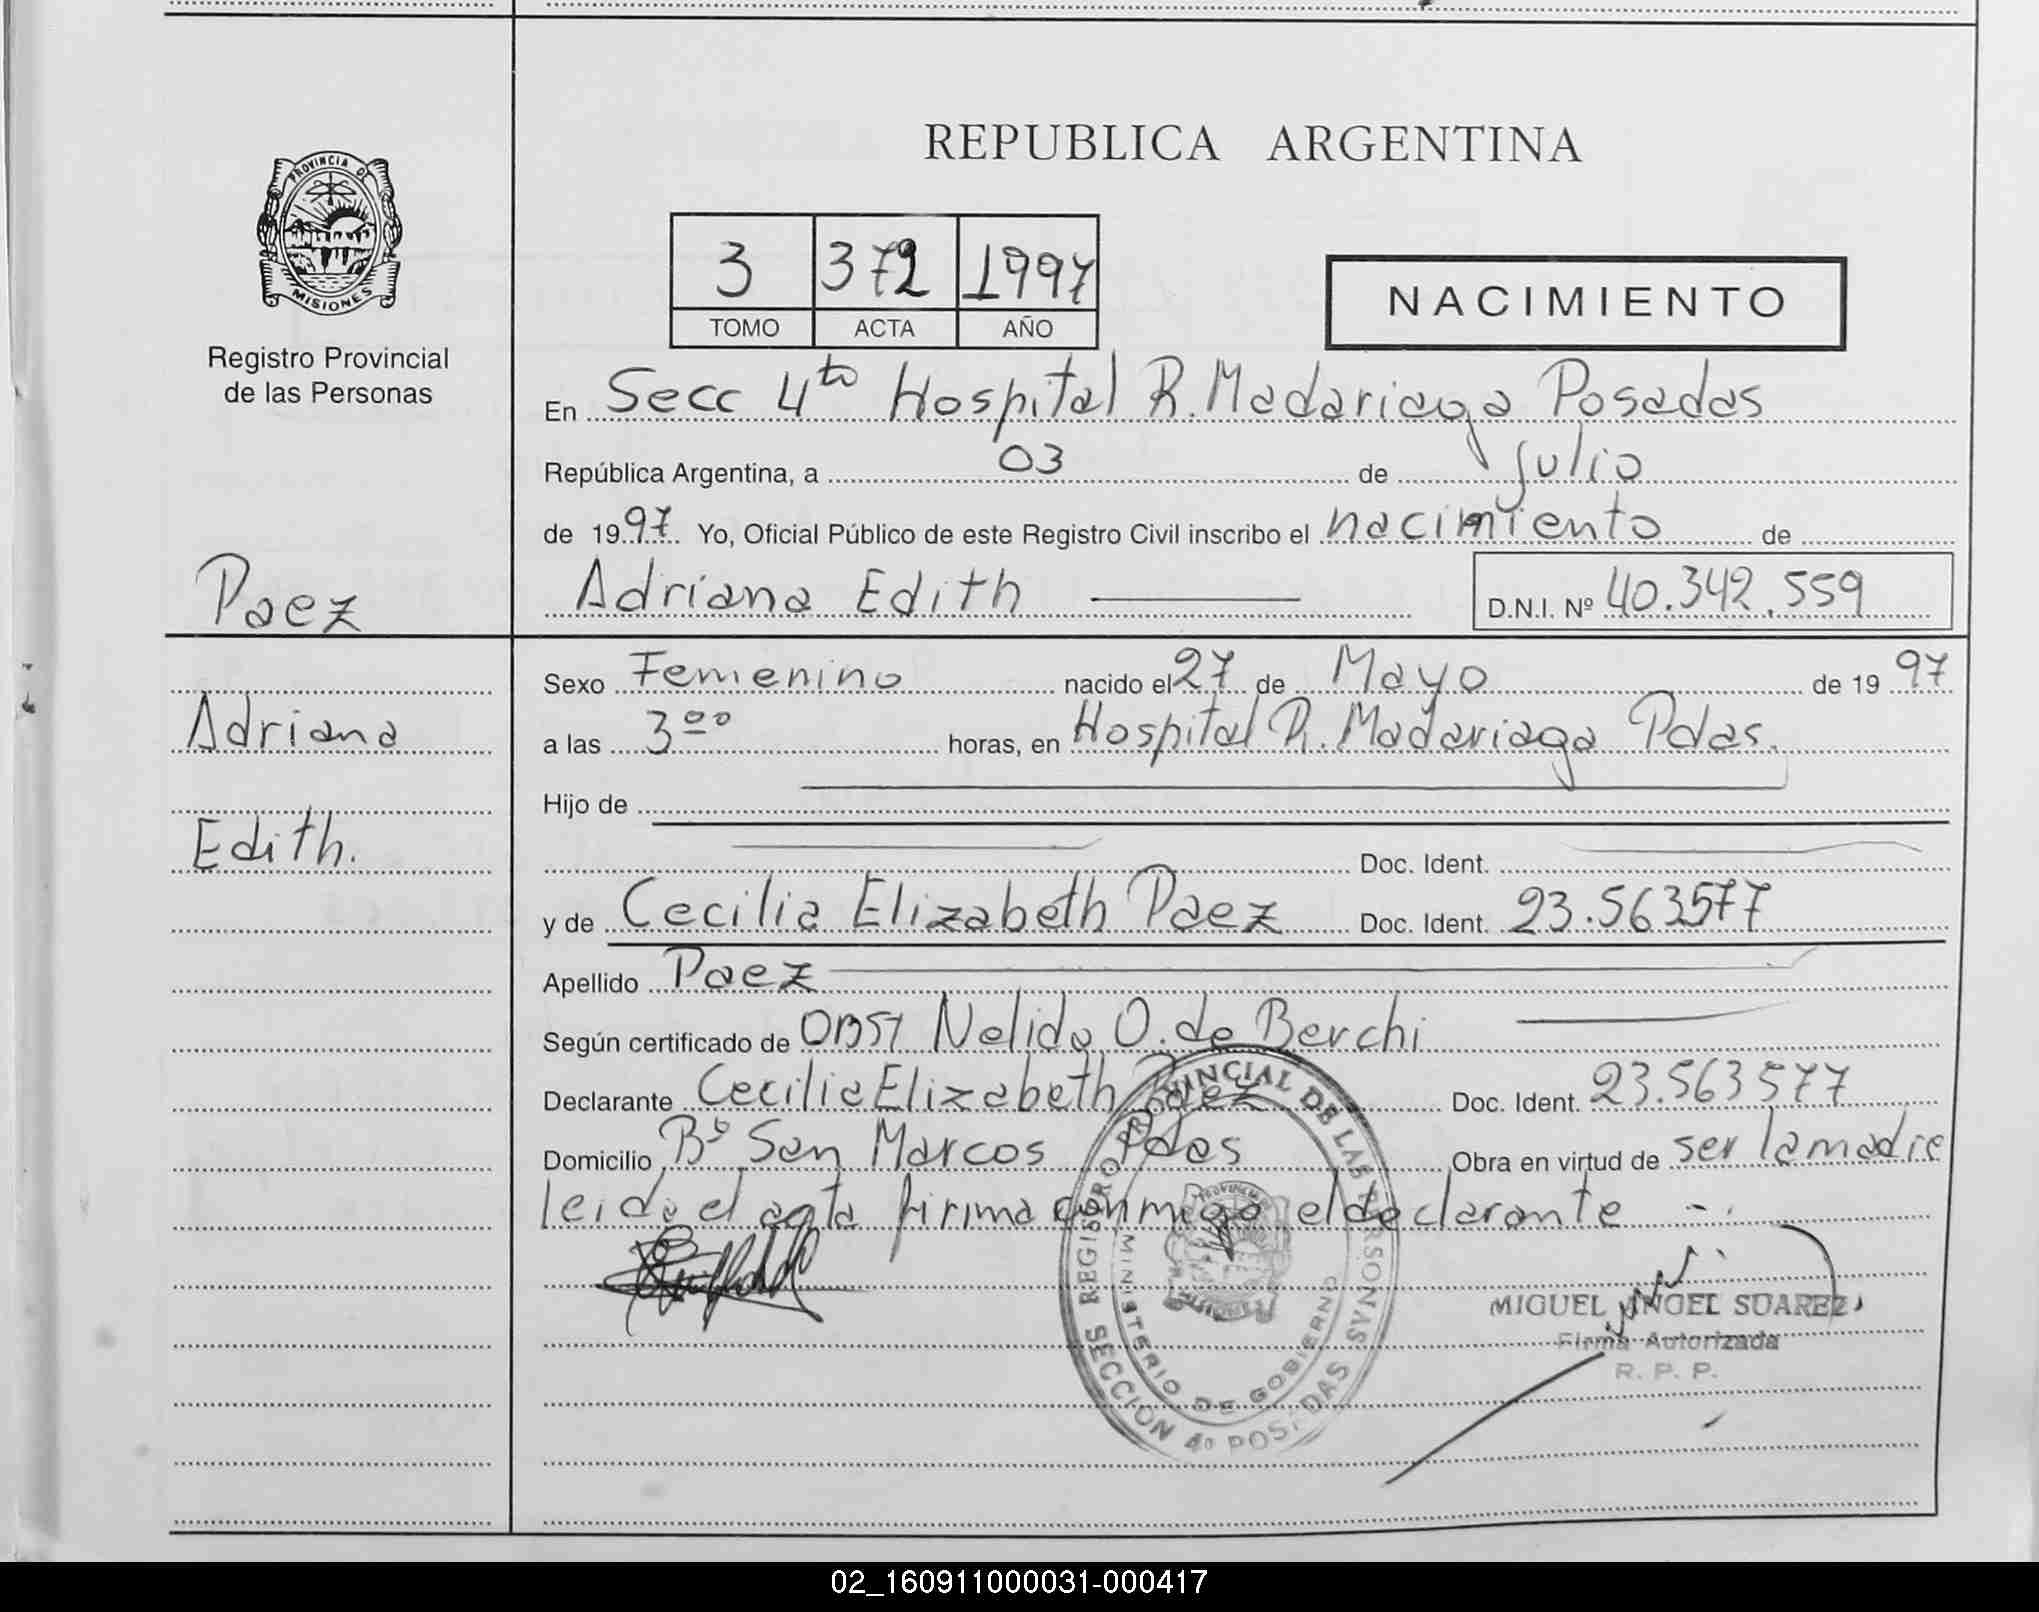 REPUBLICA ARGENTINA
PROVINCIA DE
MISIONES
Registro Provincial
de las Personas
3 372 1997
TOMO ACTA AÑO
NACIMIENTO
En Secc 4to Hospital R. Madariaga Posadas
República Argentina, a 03 de julio
de 1997 Yo, Oficial Público de este Registro Civil inscribo el nacimiento de
Paez
Adriana Edith
D.N.I. Nº 40.342.559
Adriana
Edith.
Sexo Femenino nacido el 27 de Mayo de 1997
a las 3 00 horas, en Hospital R. Madariaga Pdas.
Hijo de
Doc. Ident.
y de Cecilia Elizabeth Paez Doc. Ident. 23.563577
Apellido Paez
Según certificado de Obst Nelida O. de Berchi
Declarante Cecilia Elizabeth Paez Doc. Ident. 23.563577
Domicilio Bº San Marcos Pdas Obra en virtud de ser la madre
leida el acta firma conmigo el declarante
REGISTRO PROVINCIAL DE LAS PERSONAS
MINISTERIO DE GOBIERNO
SECCION 4º POSADAS
MIGUEL ANGEL SUAREZ
Firma Autorizada
R. P. P.
02_160911000031-000417